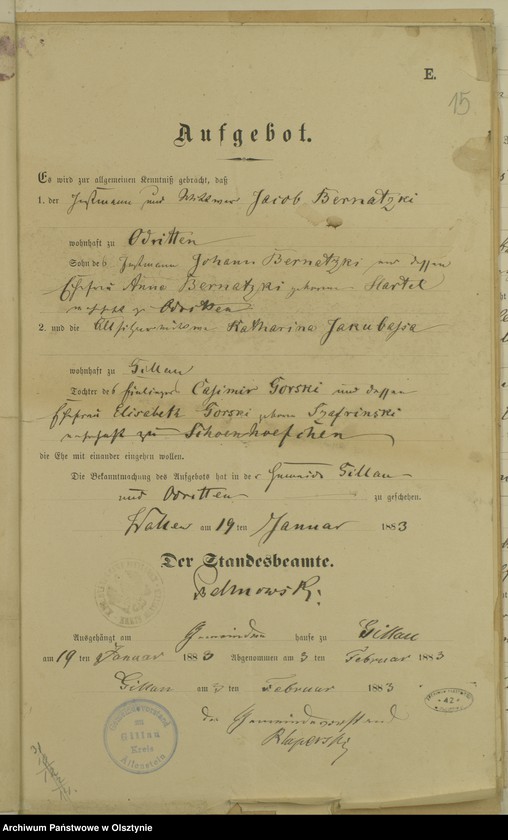 E.
15
Aufgebot.
Es wird zur allgemeinen Kenntniß gebracht, daß
1. der Instmann und Wittwer Jacob Bernatzki
wohnhaft zu Odritten
Sohn des Instmann Johann Bernatzki und dessen
Ehefrau Anna Bernatzki geborene Hartel
zu Odritten
2. und die Altsitzerwittwe Katharina Jakubassa
wohnhaft zu Gillau
Tochter des Casimir Gorski und dessen
Ehefrau Elisabeth Gorski geborne Szafrinski
wohnhaft zu Schoenhoefchen
die Ehe mit einander eingehen wollen.
Die Bekanntmachung des Aufgebots hat in der Gemeinde Gillau
und Odritten zu geschehen.
am 19 ten Januar 1883
Der Standesbeamte.
Ausgehängt am Gemeinde hause zu Gillau
am 19 ten Januar 1883 Abgenommen am 3 ten Februar 1883
Gillau am 3 ten Februar 1883
der Gemeindevorstand
Gemeindevorstand
zu
Gillau
Kreis
Allenstein
42
Archiwum Państwowe w Olsztynie